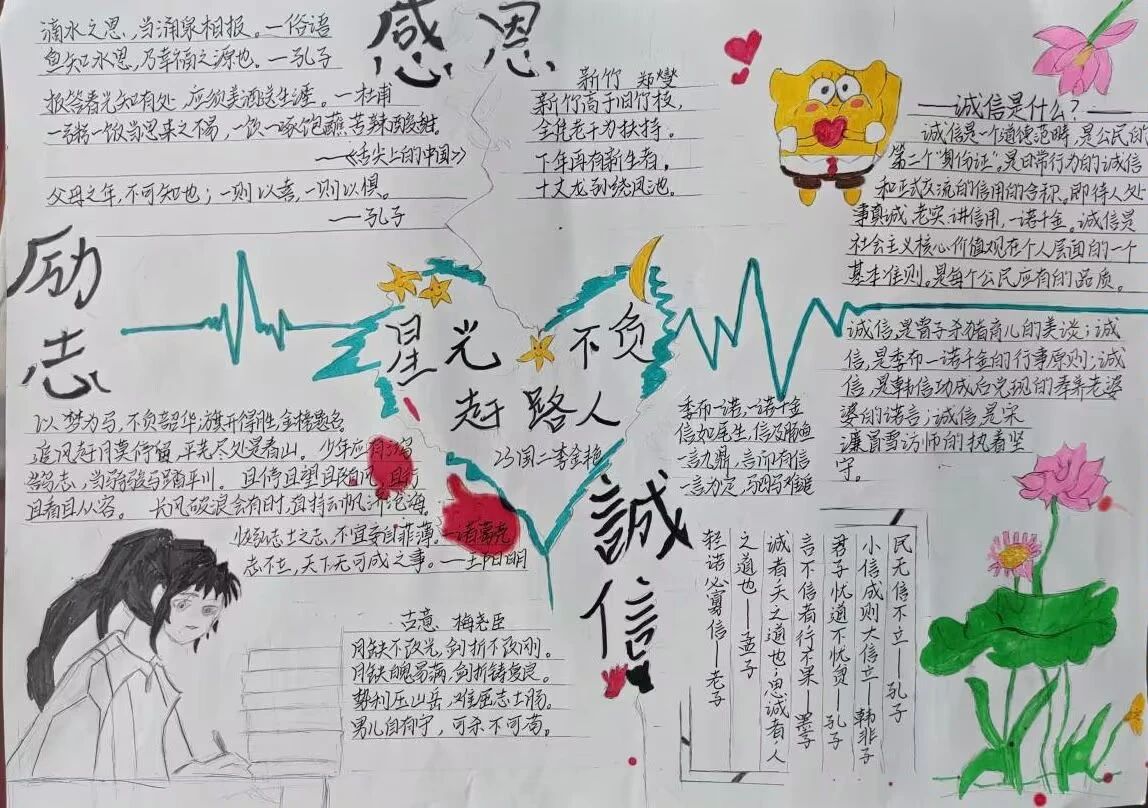 感恩
滴水之恩，当涌泉相报。—俗语
鱼知水恩，乃幸福之源也。—孔子
报答春光知有处，应须美酒送生涯。—杜甫
一粥一饭当思来之不易，一饮一啄饱蘸苦辣酸甜。
—《舌尖上的中国》
父母之年，不可知也；一则以喜，一则以惧。
—孔子
新竹 郑燮
新竹高于旧竹枝，
全凭老干为扶持。
下年再有新生者，
十丈龙孙绕凤池。
—诚信是什么？—
诚信是一个道德范畴，是公民的
第二个“身份证”。是日常行为的诚信
和正式交流的信用的合称。即待人处
事真诚、老实、讲信用，一诺千金。诚信是
社会主义核心价值观在个人层面的一个
基本准则。是每个公民应有的品质。
诚信，是曾子杀猪育儿的美谈；诚
信，是季布一诺千金的行事原则；诚
信，是韩信功成后兑现的奉养老婆
婆的诺言；诚信是宋
濂冒雪访师的执着坚
守。
励志
星光不负
赶路人
23国二李金艳
以梦为马，不负韶华；旗开得胜，金榜题名
追风赶月莫停留，平芜尽处是春山。少年应有鸿
鹄志，当骑骏马踏平川。且待且望且随风，且行
且看且从容。长风破浪会有时，直挂云帆济沧海。
恢弘志士之志，不宜妄自菲薄。—诸葛亮
志不立，天下无可成之事。—王阳明
古意 梅尧臣
月缺不改光，剑折不改刚。
月缺魄易满，剑折铸复良。
势利压山岳，难屈志士肠。
男儿自有守，可杀不可苟。
誠信
季布一诺，一诺千金
信如尾生，信及豚鱼
一言九鼎，言而有信
一言为定，驷马难追
民无信不立——孔子
小信成则大信立——韩非子
君子忧道不忧贫——孔子
言不信者行不果——墨子
诚者，天之道也，思诚者，人
之道也——孟子
轻诺必寡信——老子